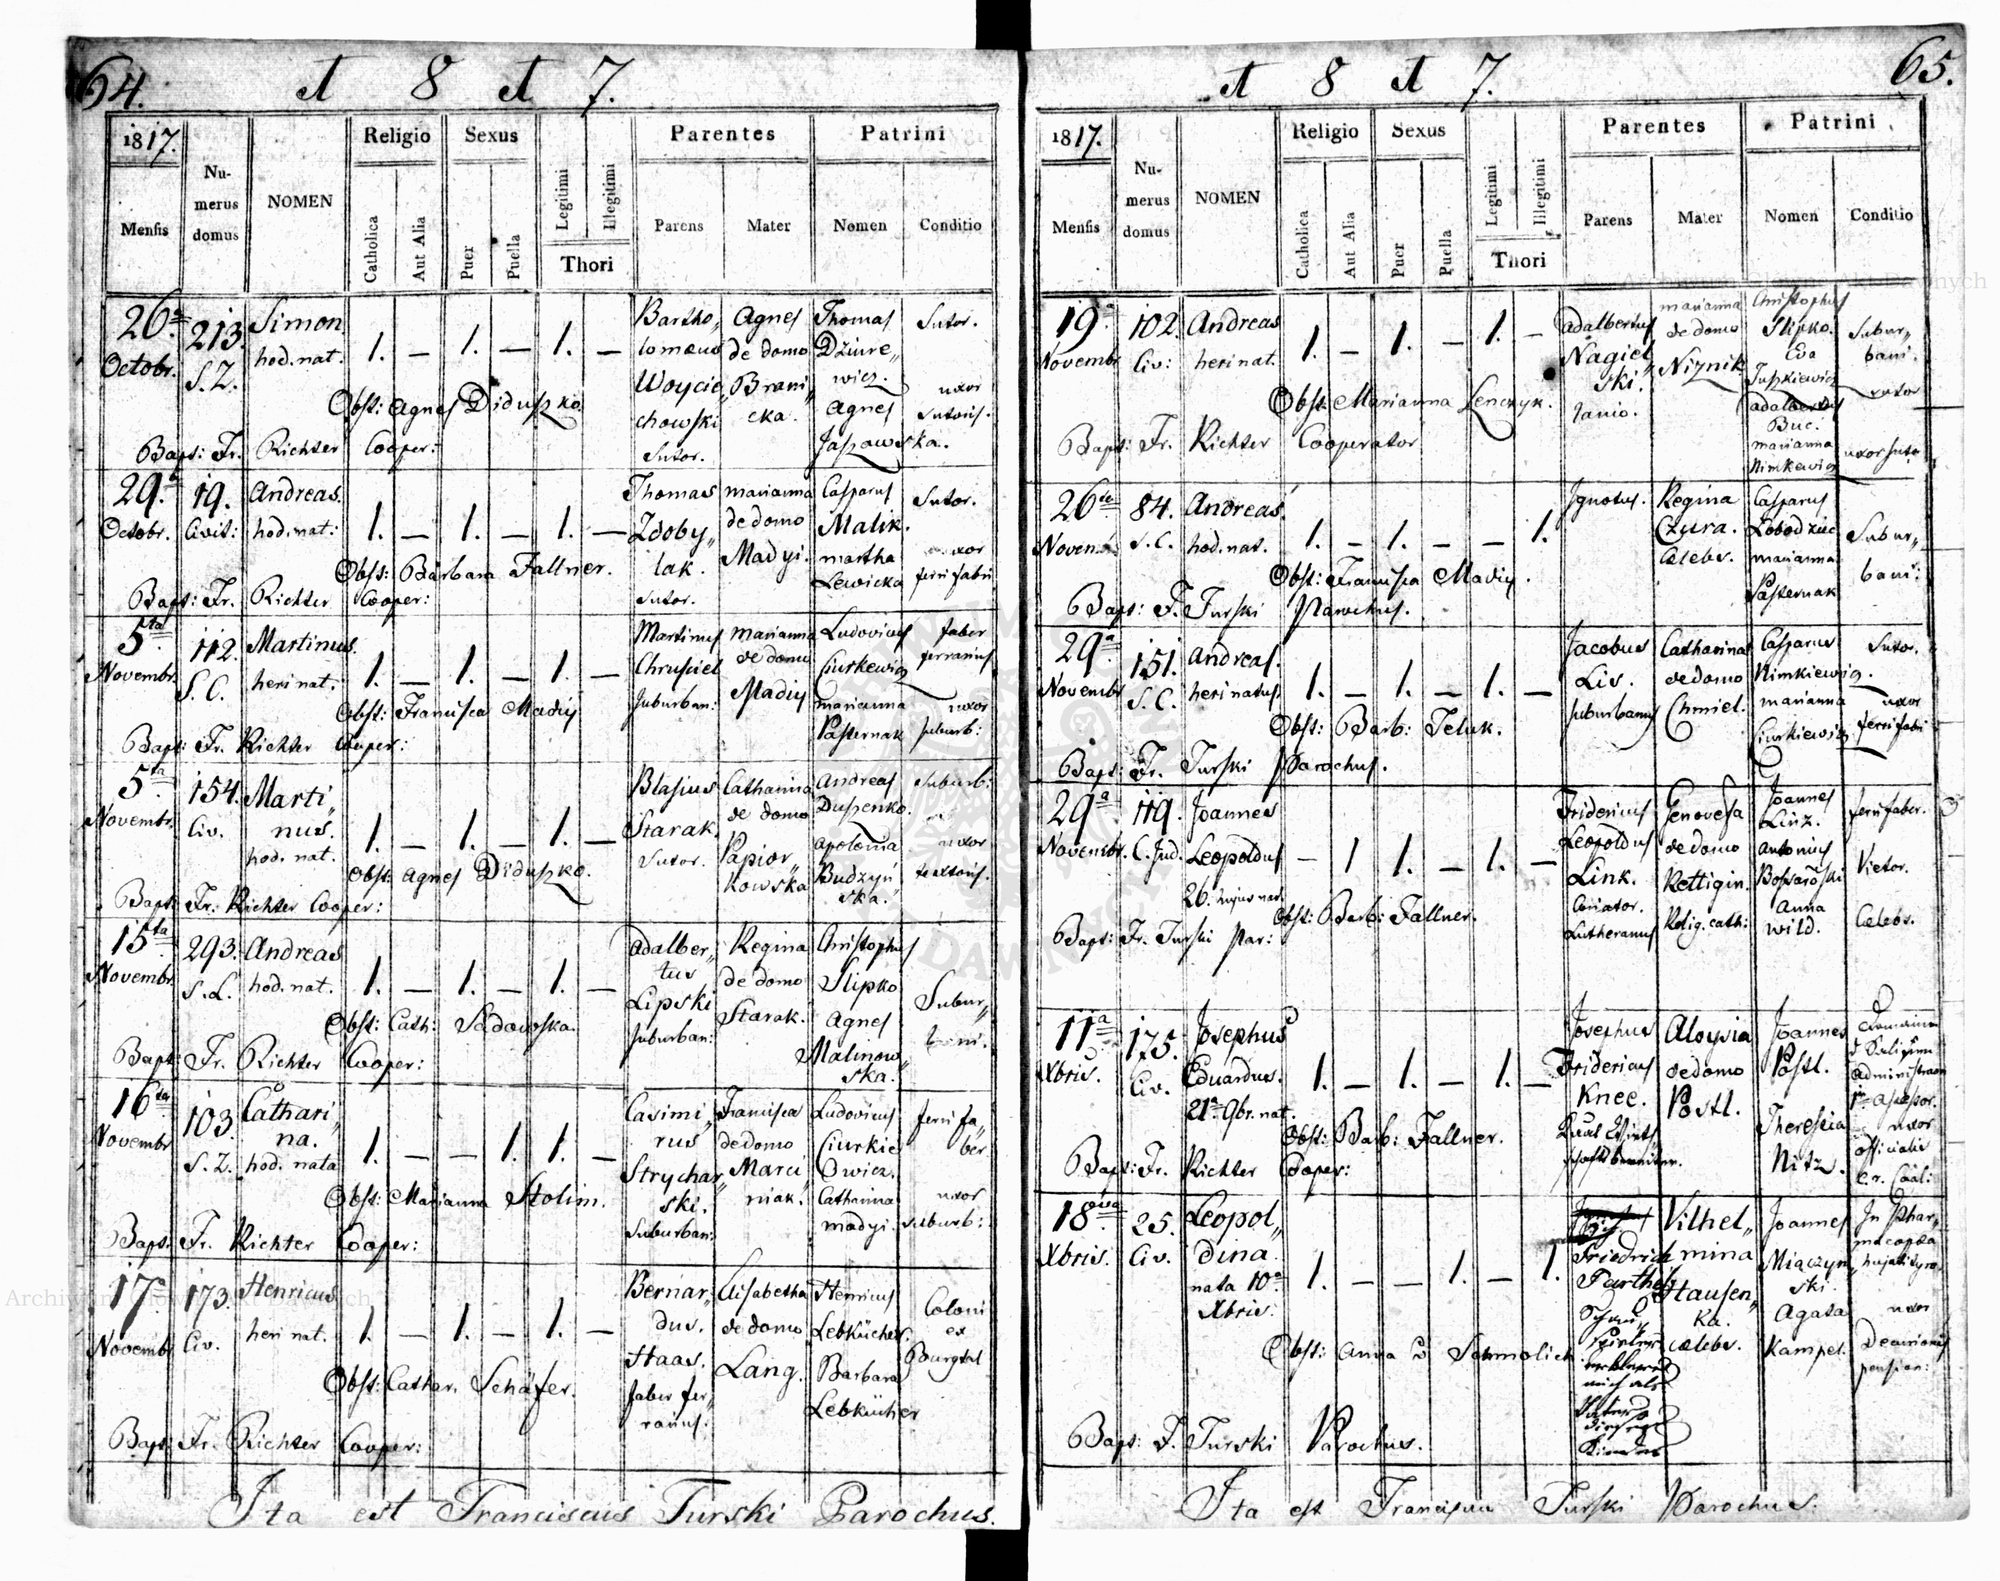 64.
1 8 1 7.
1817.
Mensis
Numerus domus
NOMEN
Religio
Catholica
Aut Alia
Sexus
Puer
Puella
Legitimi
Illegitimi
Thori
Parentes
Parens
Mater
Patrini
Nomen
Conditio
26a Octobr. 213. S. Z. Simon hod. nat. 1. — 1. — 1. —
Bartholomæus Woyciechowski Sutor.
Agnes de domo Branicka.
Thomas Dziurewicz. Sutor.
Agnes Jaszawska. uxor Sutoris.
Obst: Agnes Diduszko.
Bapt: Fr. Richter Cooper:
29a Octobr. 19. Civit: Andreas hod. nat: 1. — 1. — 1. —
Thomas Zdobylak. Sutor.
Marianna de domo Madyi.
Casparus Malik. Sutor.
Martha Lewicka uxor ferri fabri
Obst: Barbara Fallner.
Bapt: Fr. Richter Cooper:
5ta Novembr. 112. S. C. Martinus heri nat. 1. — 1. — 1. —
Martinus Chrusciel Suburban:
Marianna de domo Madiy
Ludovicus Ciurkewicz faber ferrarius
Marianna Pasternak uxor suburb:
Obst: Francisca Madiy
Bapt: Fr. Richter Cooper:
5ta Novembr. 154. Civ. Martinus. hod. nat. 1. — 1. — 1. —
Blasius Starak. Sutor.
Catharina de domo Papiorkowska
Andreas Duszenko. Suburb:
Apolonia Budzyńska. uxor textoris.
Obst: Agnes Diduszko.
Bapt: Fr. Richter Cooper:
15ta Novembr. 293. S. L. Andreas hod. nat. 1. — 1. — 1. —
Adalbertus Lipski Suburban:
Regina de domo Starak.
Christophus Slipko
Agnes Malinowska. Suburbani.
Obst: Cath: Sadowska.
Bapt: Fr. Richter Cooper:
16ta Novembr 103. S. Z. Catharina. hod. nata 1. — — 1. 1. —
Casimirus Strycharski. Suburban:
Francisca de domo Marciniak.
Ludovicus Ciurkiewicz. ferri faber.
Catharina Madyi. uxor suburb:
Obst: Marianna Stolim.
Bapt: Fr. Richter Cooper:
17a Novembr 173. Civ. Henricus heri nat. 1. — 1. — 1. —
Bernardus. Haas. faber ferrarius.
Elisabetha de domo Lang.
Henricus Lebkücher.
Barbara Lebkücher
Coloni ex Burgthal
Obst: Cathar. Schäfer.
Bapt: Fr. Richter Cooper:
Ita est Franciscus Turski Parochus.
65.
1 8 1 7.
1817.
Mensis
Numerus domus
NOMEN
Religio
Catholica
Aut Alia
Sexus
Puer
Puella
Legitimi
Illegitimi
Thori
Parentes
Parens
Mater
Patrini
Nomen
Conditio
19a Novembr 102. Civ: Andreas heri nat. 1. — 1. — 1. —
Adalbertus Nagielski.
Marianna de domo Niznik
Christophus Slipko. Suburbani.
Eva Juszkiewicz
Adalbertus Buc. sutor
Marianna Nimkewicz uxor suto
Obst: Marianna Lenczyk.
Bapt: Fr. Richter Cooperator
26ta Novemb 84. S. C. Andreas. hod. nat. 1. — 1. — — 1.
Ignotus.
Regina Czura. Celebs.
Casparus Lobodziec
Marianna Pasternak
Suburbani:
Obst: Francisca Madiy.
Bapt: F. Turski Parochus.
29a Novembr 151. S. C. Andreas. heri natus. 1. — 1. — 1. —
Jacobus Liv. Suburbanus
Catharina de domo Chmiel.
Casparus Nimkiewicz. Sutor.
Marianna Ciurkiewicz uxor ferri fabri
Obst: Barb: Teluk.
Bapt: Fr. Turski Parochus.
29a Novembr. 119. C. Jud. Joannes Leopoldus 26. hujus nat. — 1 1. — 1. —
Fridericus Leopoldus Link. Lutheranus
Genovefa de domo Rettigin. Relig. cath:
Joannes Linz. ferri faber.
Antonius Bossaroski Vietor.
Anna Wild. Celebs.
Obst: Barb: Fallner.
Bapt: Fr. Turski Par:
11a Xbris. 175. Civ. Josephus Eduardus. 21a 9br. nat. 1. — 1. — 1. —
Josephus Fridericus Knee.
Aloysia de domo Postl.
Joannes Postl.
Theresia Nitz. uxor officialis
Obst: Barb: Fallner.
Bapt: Fr. Richter Cooper:
18va Xbris. 25. Civ. Leopoldina. nata 10a Xbris. 1. — — 1. — 1.
Friedrich Parthey
Vilhelmina Hausenka. celebs.
Joannes Miączynski.
Agata Kampel. uxor
Obst: Anna Schmolich
Bapt: F. Turski Parochus.
Ita est Franciscus Turski Parochus.
Archiwum Główne Akt Dawnych